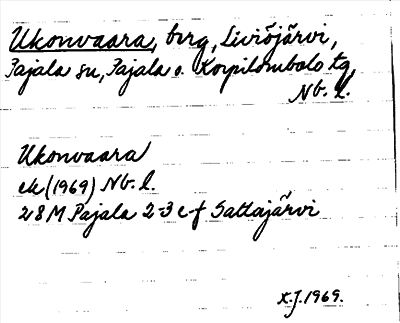 Ukonvaara, berg, Liviöjärvi,
Pajala sn, Pajala o. Korpilombolo tg,
Nb. l.
Ukonvaara
ek (1969) Nb. l.
28 M Pajala 2-3 e-f Sattajärvi
K.J. 1969.